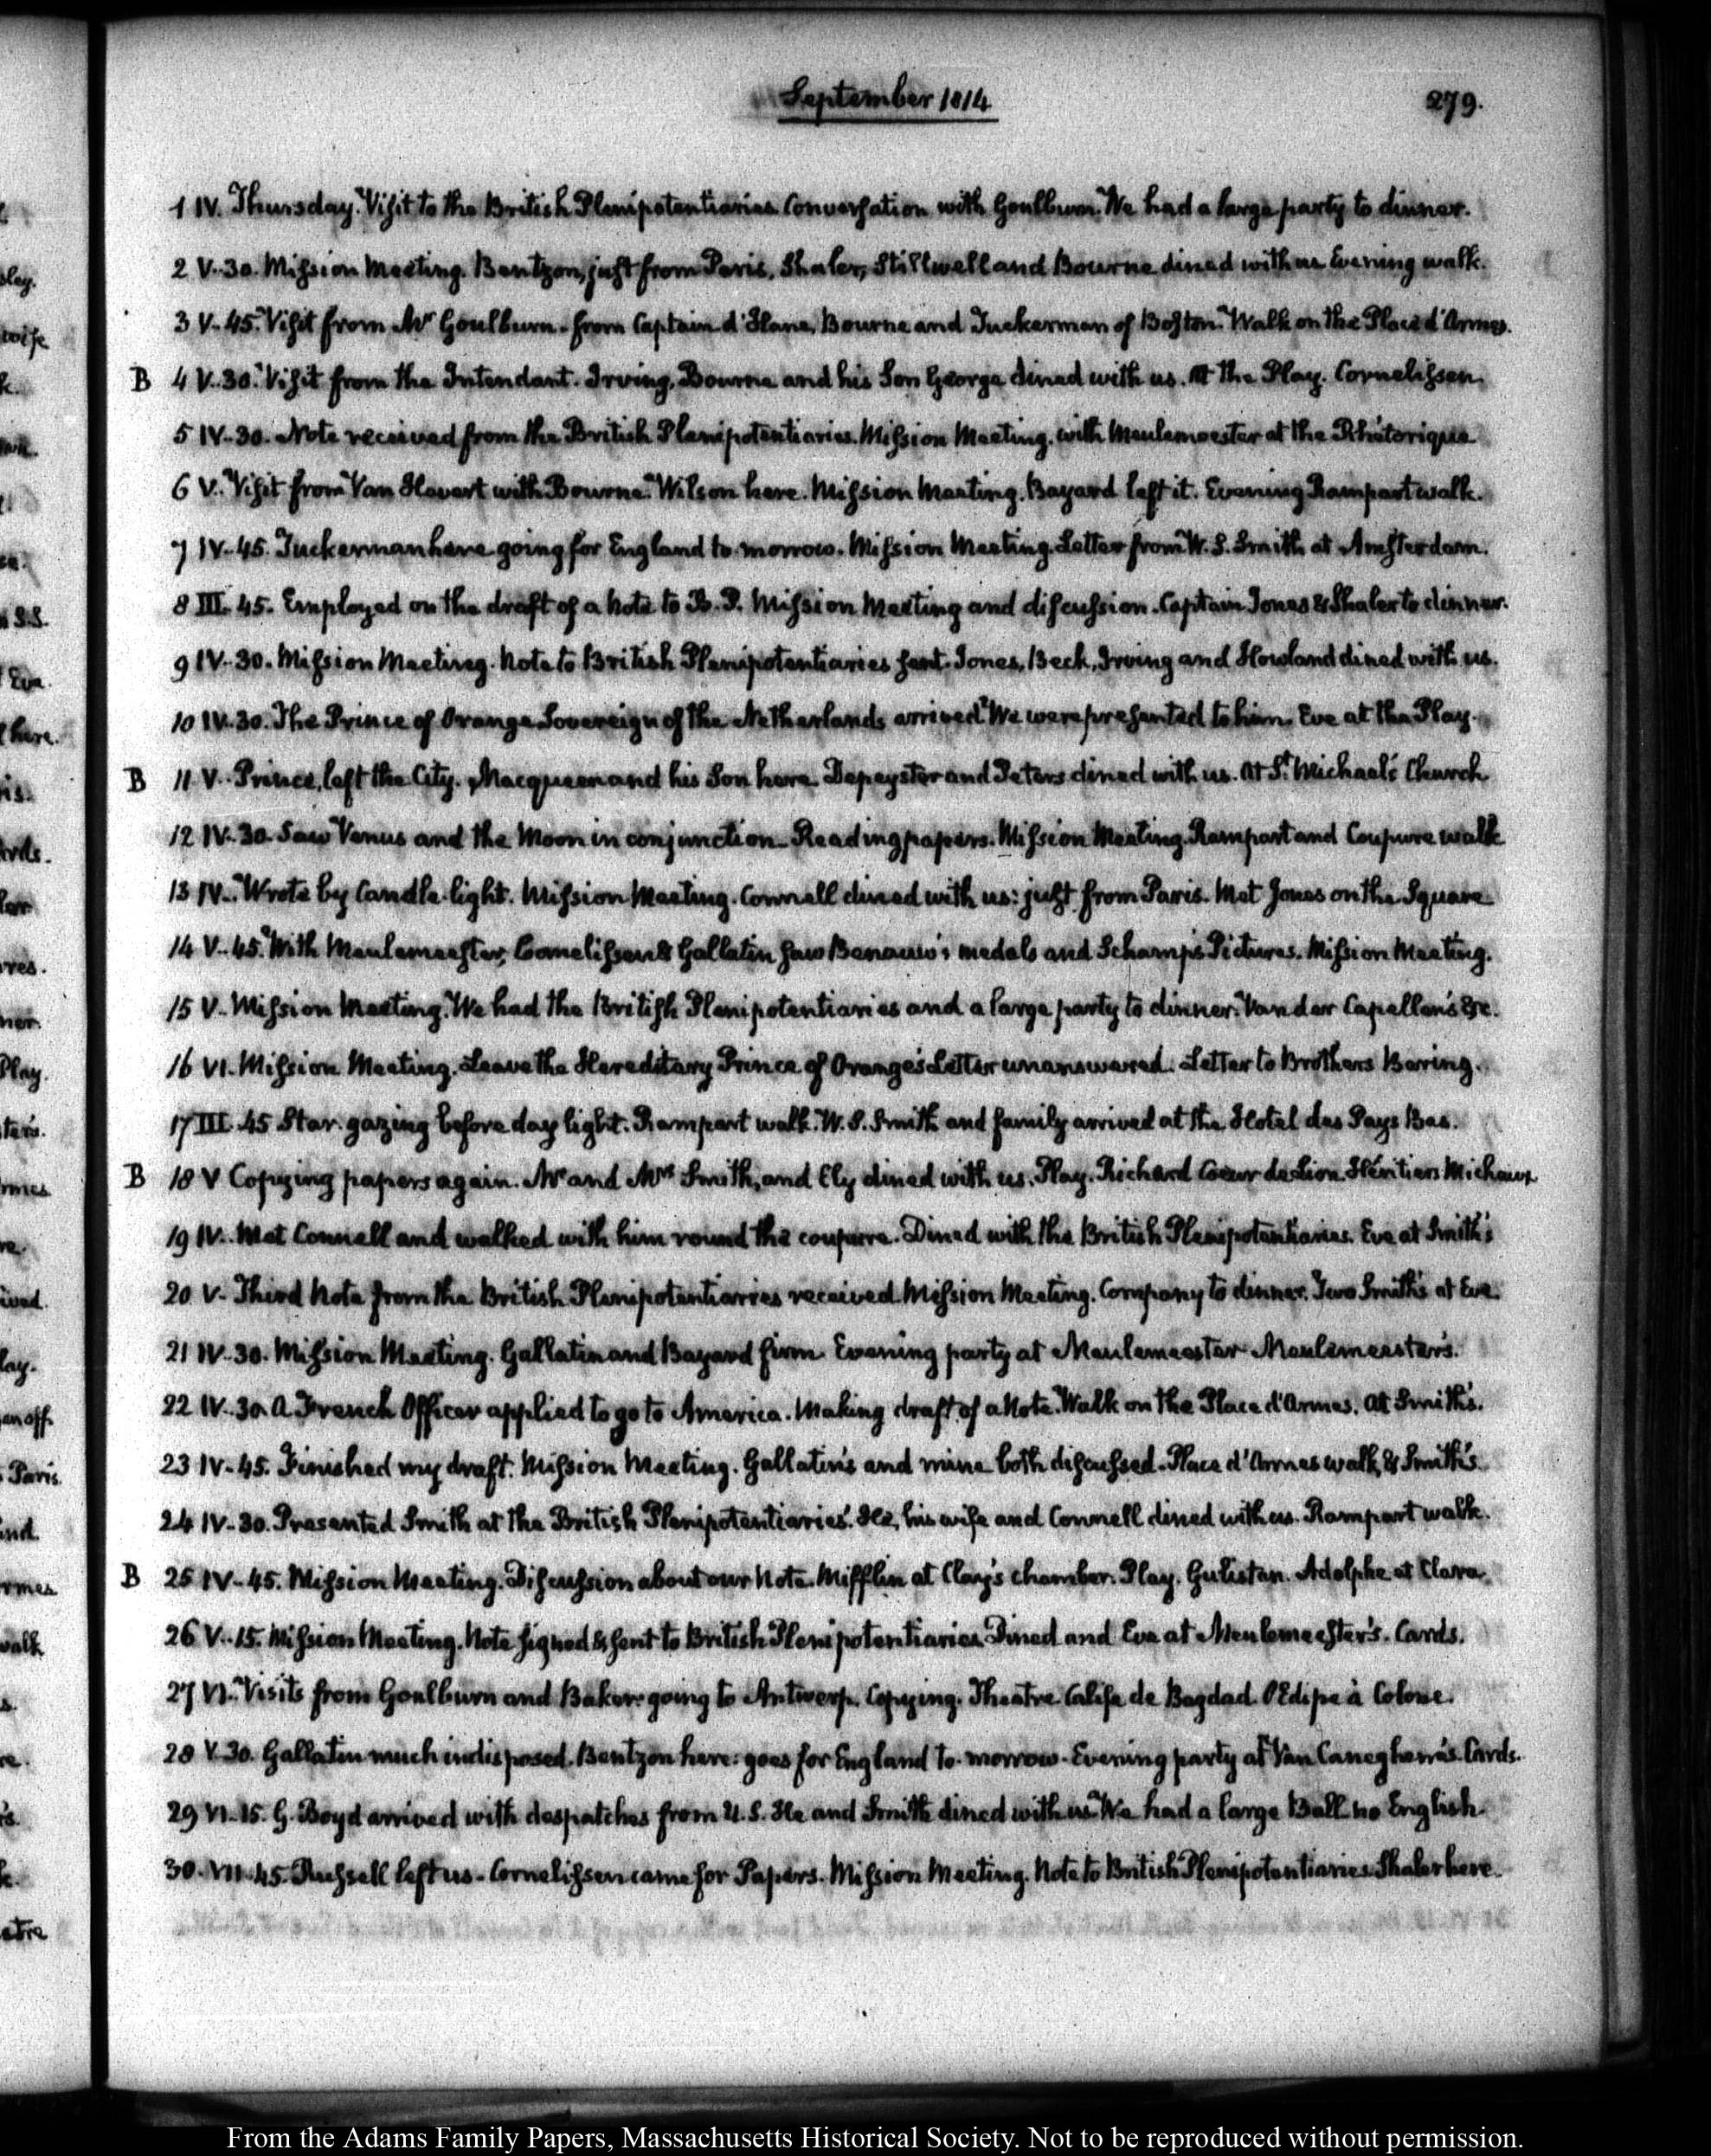 September 1814
279.
1 IV. Thursday. Visit to the British Plenipotentiaries Conversation with Goulburn. We had a large party to dinner.
2 V..30. Mission Meeting. Bentzon, just from Paris, Shaler, Stillwell and Bourne dined with us Evening walk.
3 V..45. Visit from Mr Goulburn. from Captain d'Hane, Bourne and Tuckerman of Boston. Walk on the Place d'Armes.
B 4 V..30. Visit from the Intendant. Irving, Bourne and his Son George dined with us. At the Play. Cornelissen.
5 IV..30. Note received from the British Plenipotentiaries. Mission Meeting. with Meulemeester at the Rhétorique
6 V. Visit from Van Havert with Bourne. Wilson here. Mission Meeting. Bayard left it. Evening Rampart walk.
7 IV..45. Tuckerman here going for England to-morrow. Mission Meeting. Letter from W. S. Smith at Amsterdam.
8 III. 45. Employed on the draft of a Note to B. P. Mission Meeting and discussion. Captain Jones & Shaler to dinner.
9 IV..30. Mission Meeting. Note to British Plenipotentiaries sent. Jones, Beck, Irving and Howland dined with us.
10 IV.30. The Prince of Orange Sovereign of the Netherlands arrived. We were presented to him. Eve at the Play.
B 11 V.. Prince, left the City. Macqueen and his Son here. Depeyster and Peters dined with us. At St. Michael's Church
12 IV..30. Saw Venus and the Moon in conjunction. Reading papers. Mission Meeting. Rampart and Coupure walk
13 IV.. Wrote by Candle-light. Mission Meeting. Connell dined with us: just from Paris. Met Jones on the Square
14 V..45. With Meulemeester, Cornelissen & Gallatin saw Benauw's medals and Schamp's Pictures. Mission Meeting.
15 V.. Mission Meeting. We had the British Plenipotentiaries and a large party to dinner. Van der Capellen's &c.
16 VI. Mission Meeting. Leave the Hereditary Prince of Orange's Letter unanswered. Letter to Brothers Baring.
17 III. 45 Star-gazing before day light. Rampart walk. W. S. Smith and family arrived at the Hotel des Pays Bas.
B 18 V Copying papers again. Mr and Mrs Smith, and Ely dined with us. Play. Richard Coeur de Lion. Héritiers Michaux
19 IV. Met Connell and walked with him round the coupure. Dined with the British Plenipotentiaries. Eve at Smith's
20 V. Third Note from the British Plenipotentiaries received. Mission Meeting. Company to dinner. Two Smith's at Eve.
21 IV..30. Mission Meeting. Gallatin and Bayard firm. Evening party at Meulemeester Meulemeester's.
22 IV..30. A French Officer applied to go to America. Making draft of a Note. Walk on the Place d'Armes. At Smith's.
23 IV..45. Finished my draft. Mission Meeting. Gallatin's and mine both discussed. Place d'Armes walk, & Smith's.
24 IV..30. Presented Smith at the British Plenipotentiaries'. He, his wife and Connell dined with us. Rampart walk.
B 25 IV..45. Mission Meeting. Discussion about our Note. Mifflin at Clay's chamber. Play. Gulistan. Adolphe et Clara.
26 V..15. Mission Meeting. Note signed & sent to British Plenipotentiaries. Dined and Eve at Meulemeester's. Cards.
27 VI. Visits from Goulburn and Baker: going to Antwerp. Copying. Theatre. Calife de Bagdad. Œdipe à Colone.
28 V.30. Gallatin much indisposed. Bentzon here: goes for England to-morrow. Evening party at Van Caneghem's. Cards.
29 VI..15. G. Boyd arrived with despatches from U.S. He and Smith dined with us. We had a large Ball. no English.
30. VII..45. Russell left us. Cornelissen came for Papers. Mission Meeting. Note to British Plenipotentiaries. Shaler here.
From the Adams Family Papers, Massachusetts Historical Society. Not to be reproduced without permission.